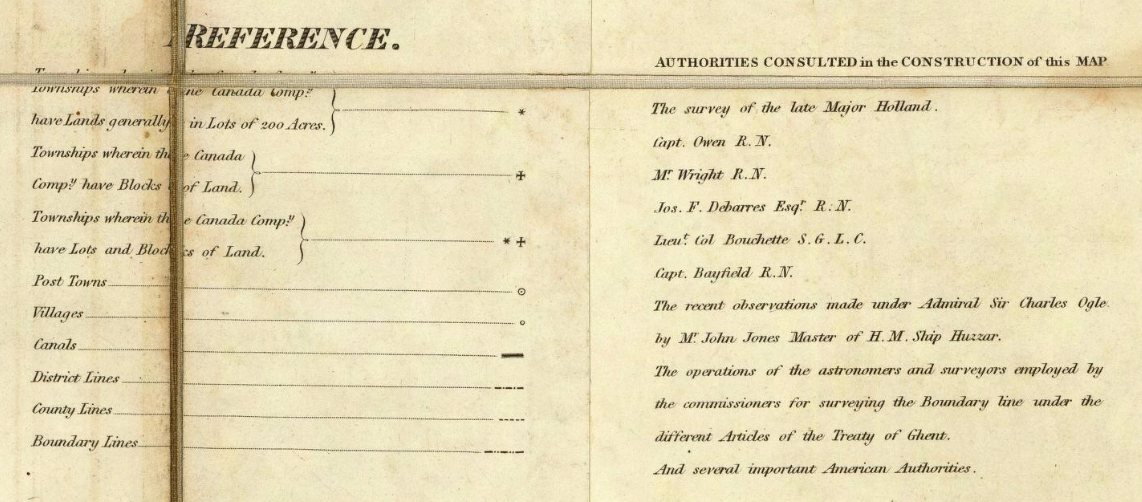 REFERENCE.
Townships wherein the Canada Comp.y
have Lands generally in Lots of 200 Acres. *
Townships wherein the Canada
Comp.y have Blocks of Land. ✠
Townships wherein the Canada Comp.y
have Lots and Blocks of Land. * ✠
Post Towns
Villages
Canals
District Lines
County Lines
Boundary Lines
AUTHORITIES CONSULTED in the CONSTRUCTION of this MAP
The survey of the late Major Holland.
Capt. Owen R.N.
Mr. Wright R.N.
Jos. F. Debarres Esqr. R.N.
Lieut. Col Bouchette S.G.L.C.
Capt. Bayfield R.N.
The recent observations made under Admiral Sir Charles Ogle
by Mr. John Jones Master of H.M. Ship Huzzar.
The operations of the astronomers and surveyors employed by
the commissioners for surveying the Boundary line under the
different Articles of the Treaty of Ghent.
And several important American Authorities.